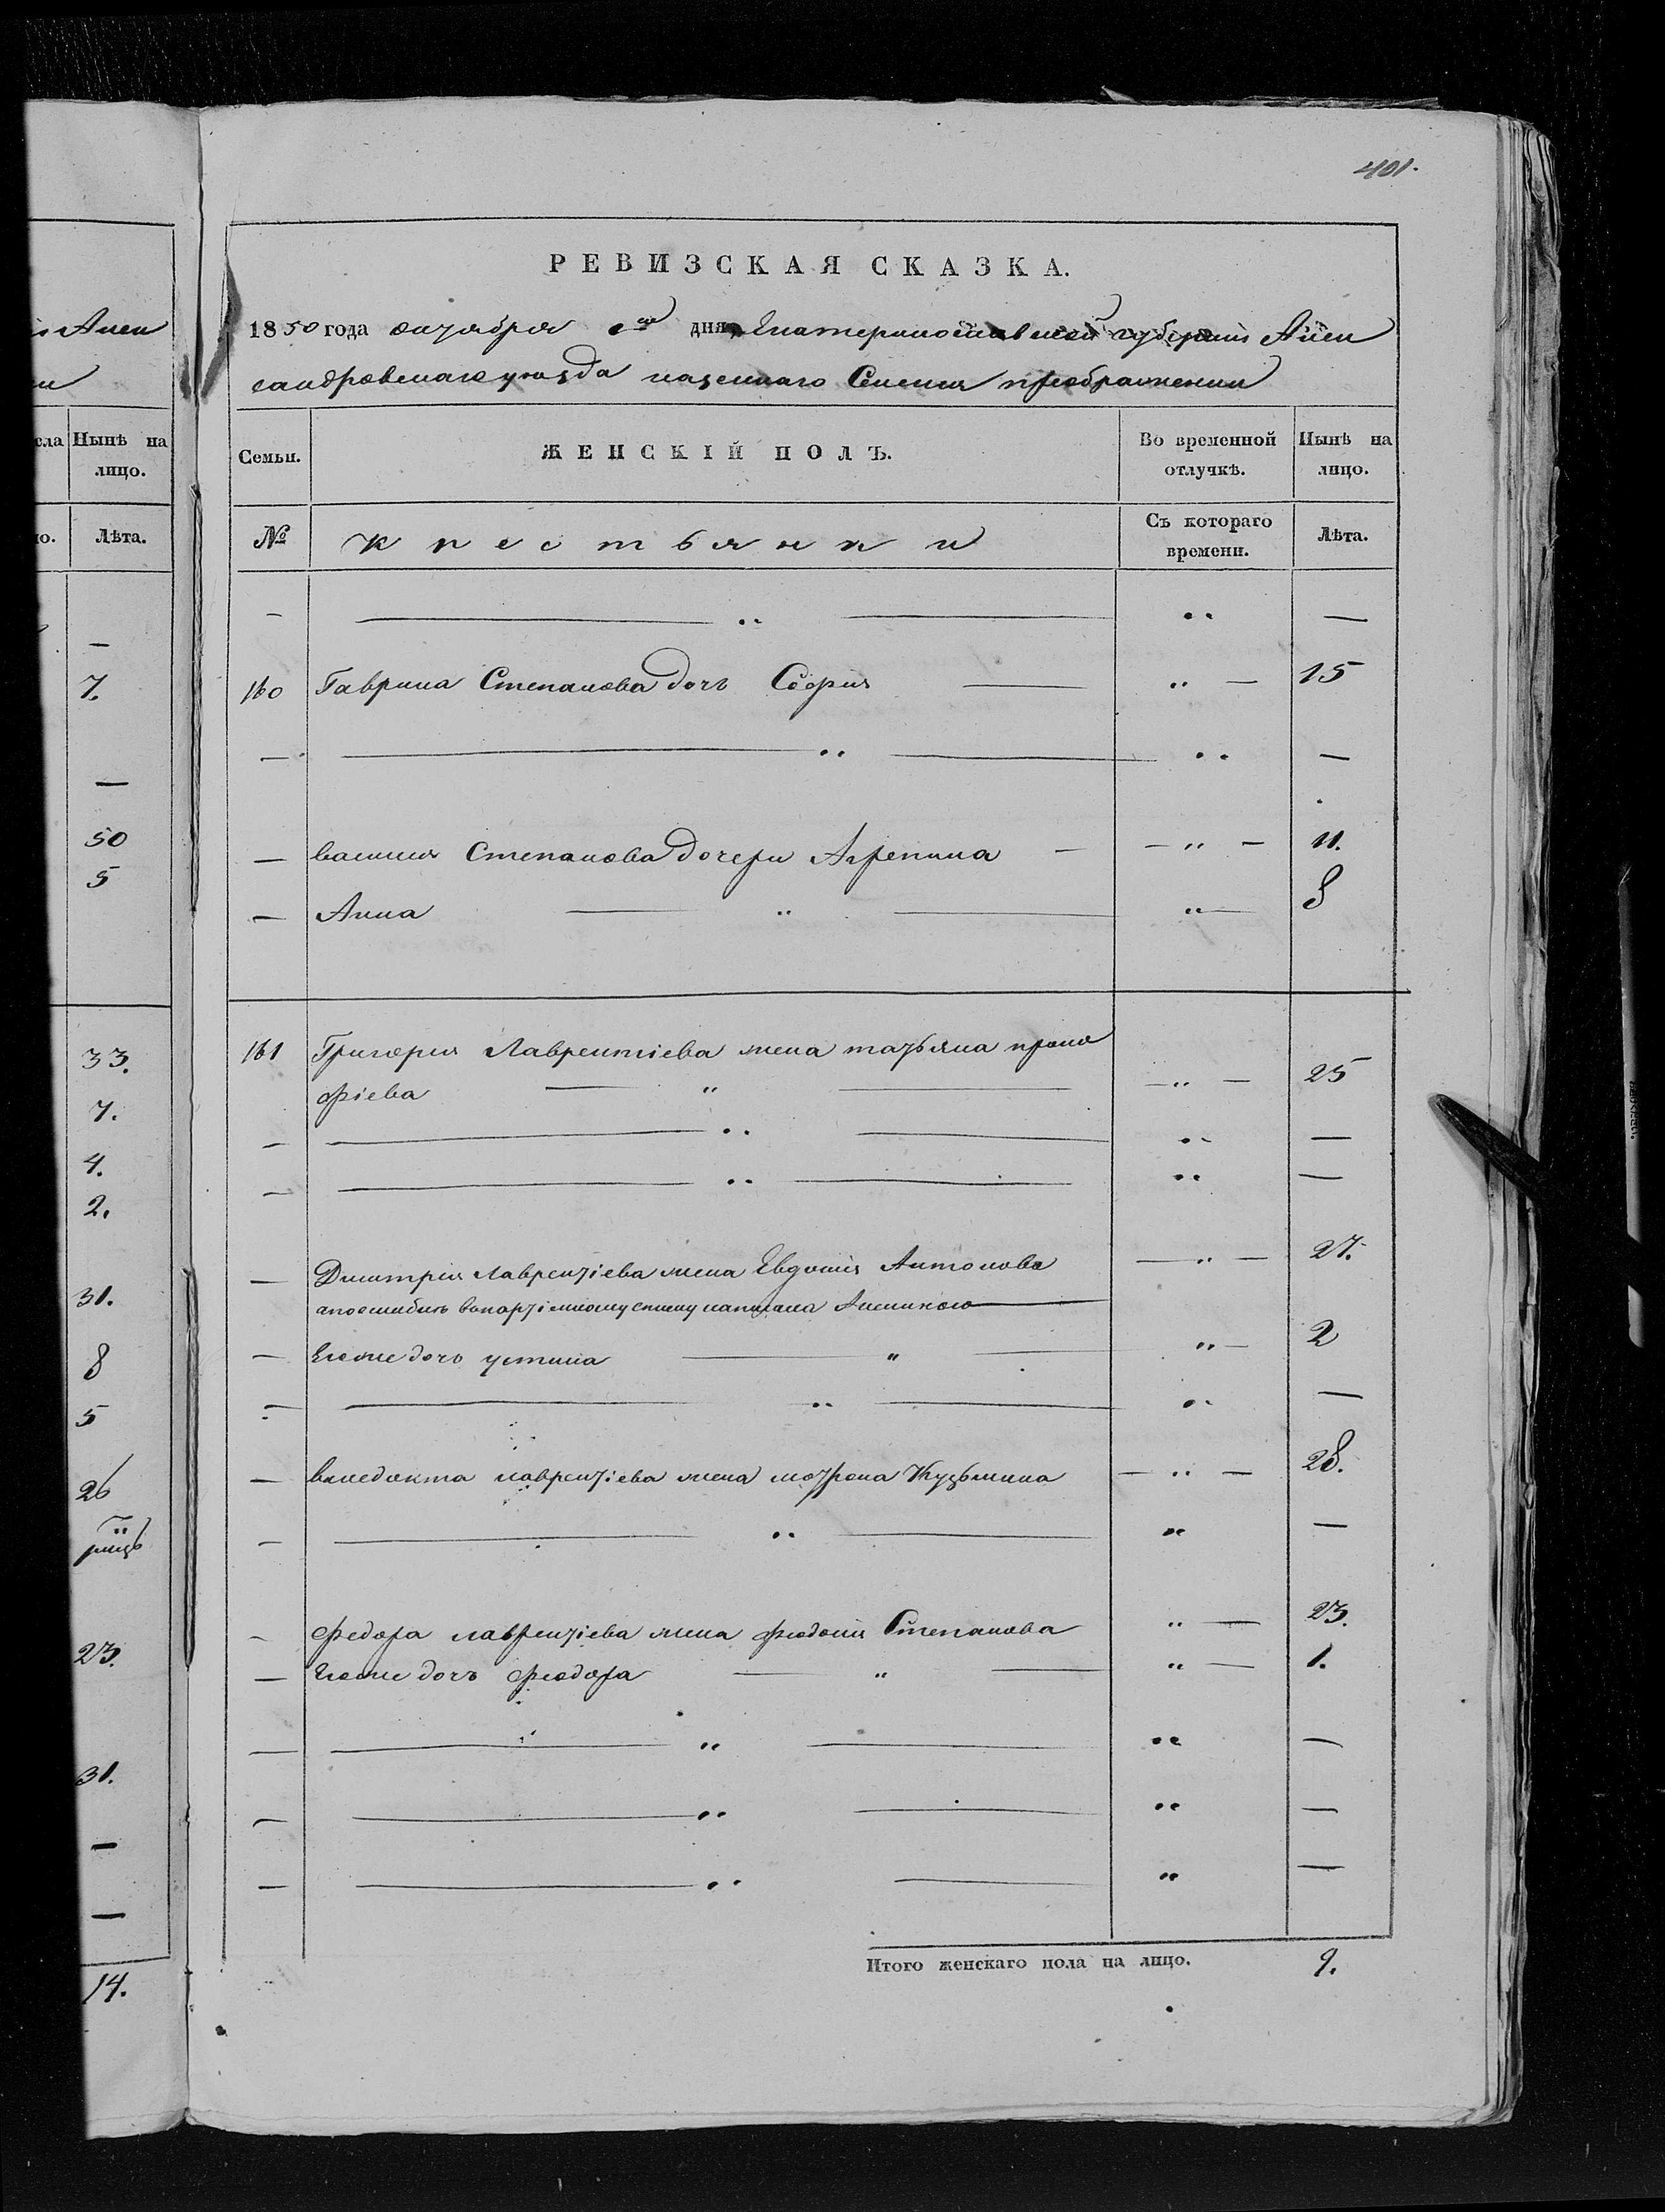 401.
РЕВИЗСКАЯ СКАЗКА.
1850 года октября дня, Екатеринославской губерніи Алек
сандровскаго уезда казеннаго Селенія преображенки
Семьи.
ЖЕНСКІЙ ПОЛЪ.
Во временной отлучкѣ.
Нынѣ на лицо.
№
Крестьянки
Съ котораго времени.
Лѣта.
— „ „ —
160 Гаврила Степанова дочь Софія — „ — 15
— „ „ —
— василія Степанова дочери Агрепина — „ — 11.
— Анна „ „ 8
161 Григорія Лаврентіева жена татьяна проко
фіева „ — „ — 25
— „ „ —
— „ „ —
— Дмитрія лаврентіева жена Евдокія Антонова — „ — 27.
апоошибкѣ написана
— Егоже дочь устина „ „ — 2
— „ „ —
— венедикта лаврентіева жена мотрона Кузьмина — „ — 28.
— „ „ —
— федора лаврентіева жена фіодосія Степанова „ — 23.
— Егоже дочь фіодора „ „ — 1.
— „ „ —
— „ „ —
— „ „ —
Итого женскаго пола на лицо. 9.
Алек
Нынѣ на лицо.
Лѣта.
—
7.
—
50
5
33.
7.
4.
2.
31.
8
5
26
23.
31.
—
—
14.